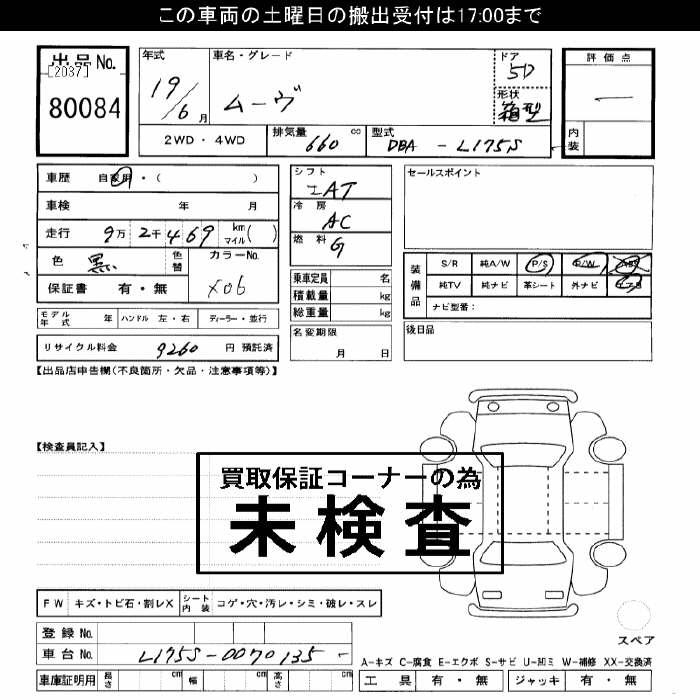 この車両の土曜日の搬出受付は17:00まで
出品No.
[2037]
80084
年式
19/6月
車名・グレード
ムーヴ
ドア
5D
形状
箱型
評価点
―
内装
2WD・4WD
排気量 660 cc
型式 DBA - L175S
車歴 自家用・( )
車検 年 月
走行 9万2千469 km マイル( )
色 黒 色替
カラーNo.
X06
保証書 有・無
シフト
IAT
冷房
AC
燃料
G
セールスポイント
装備品
S/R 純A/W P/S P/W ABS
純TV 純ナビ 革シート 外ナビ エアB
ナビ型番:
乗車定員 名
積載量 kg
総重量 kg
モデル年式 年 ハンドル 左・右 ディーラー・並行
名変期限
月 日
後日品
リサイクル料金 9260 円 預託済
【出品店申告欄(不良箇所・欠品・注意事項等)】
【検査員記入】
買取保証コーナーの為
未検査
FW キズ・トビ石・割レX シート内装 コゲ・穴・汚レ・シミ・破レ・スレ
登録No.
車台No. L175S-0070135 -
車庫証明用 長さ cm 幅 cm 高さ cm
スペア
A-キズ C-腐食 E-エクボ S-サビ U-凹ミ W-補修 XX-交換済
工具 有・無 ジャッキ 有・無